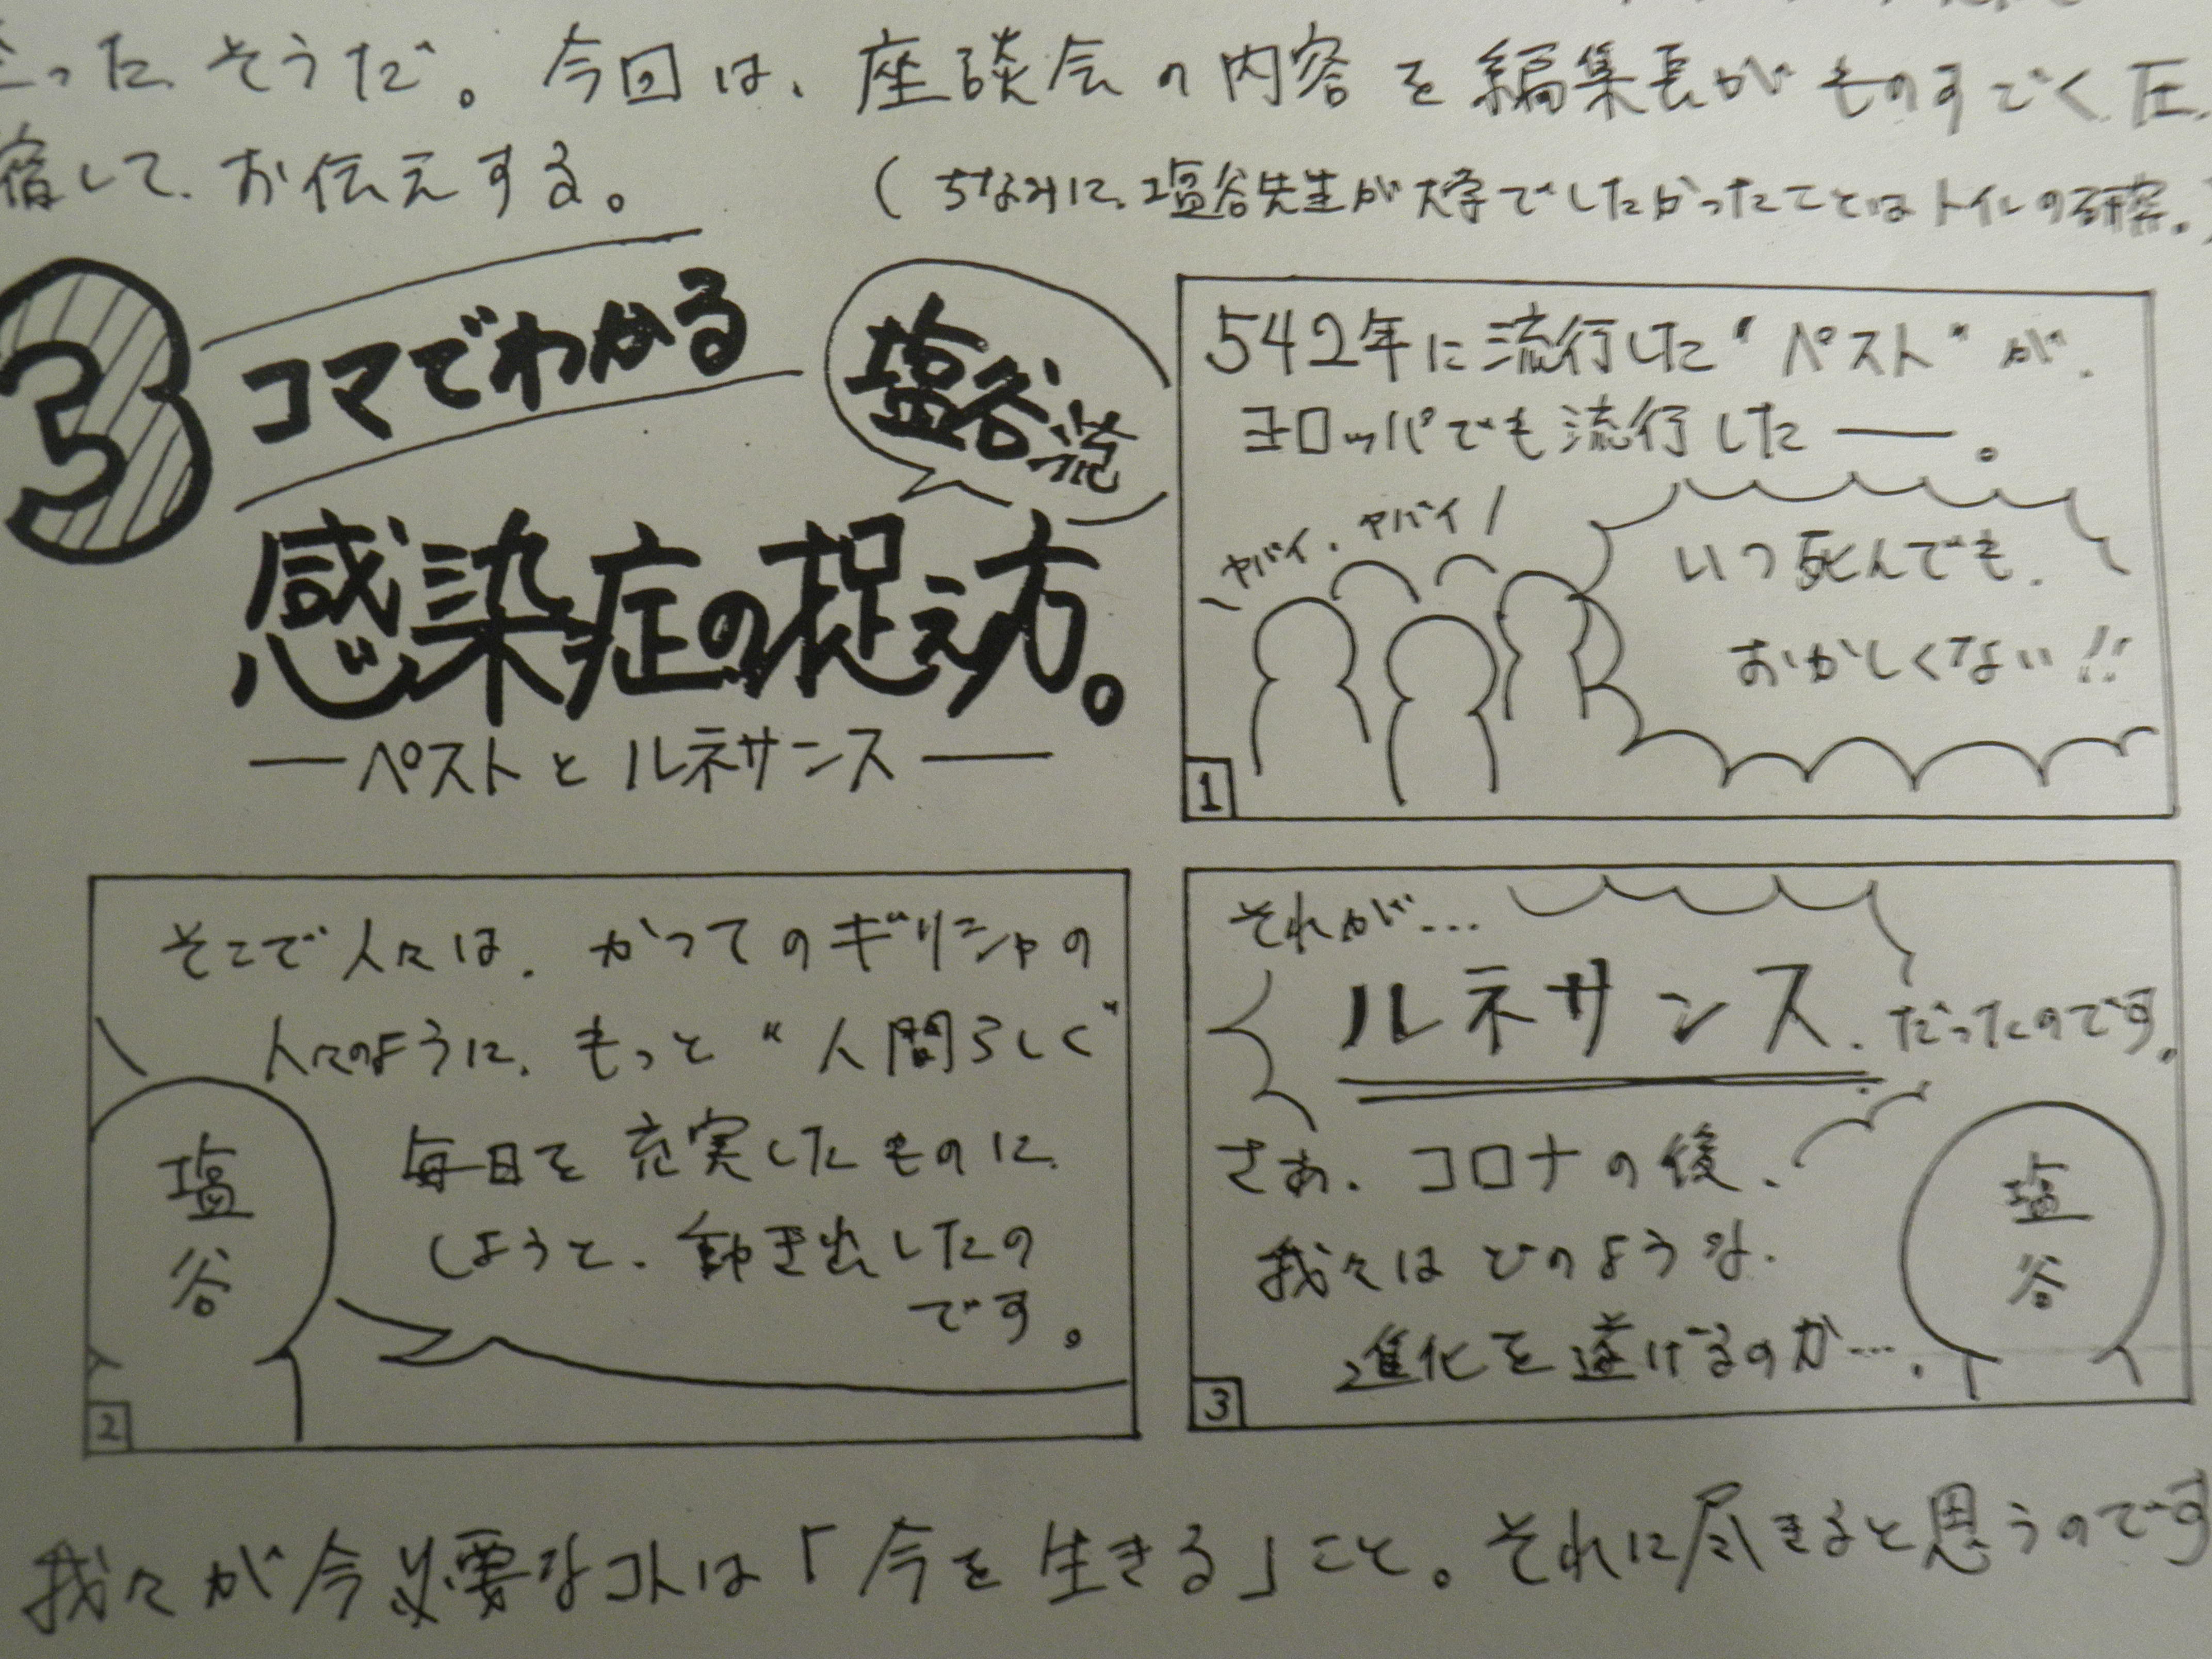 ったそうだ。今回は、座談会の内容を編集長がものすごく圧
縮して、お伝えする。
(ちなみに、塩谷先生が大学でしたかったことはトイレの研究。)
3コマでわかる
塩谷流
感染症の捉え方。
―ペストとルネサンス―
542年に流行した"ペスト"が、
ヨーロッパでも流行した――。
ヤバイ、ヤバイ
いつ死んでも、
おかしくない!!
1
そこで人々は、かつてのギリシャの
人々のように、もっと"人間らしく"
毎日を充実したものに
しようと、動き出したの
です。
塩
谷
2
それが…
ルネサンス、だったのです。
さあ、コロナの後、
我々はどのような、
進化を遂げるのか…。
塩
谷
3
我々が今必要なコトは「今を生きる」こと。それに尽きると思うのです